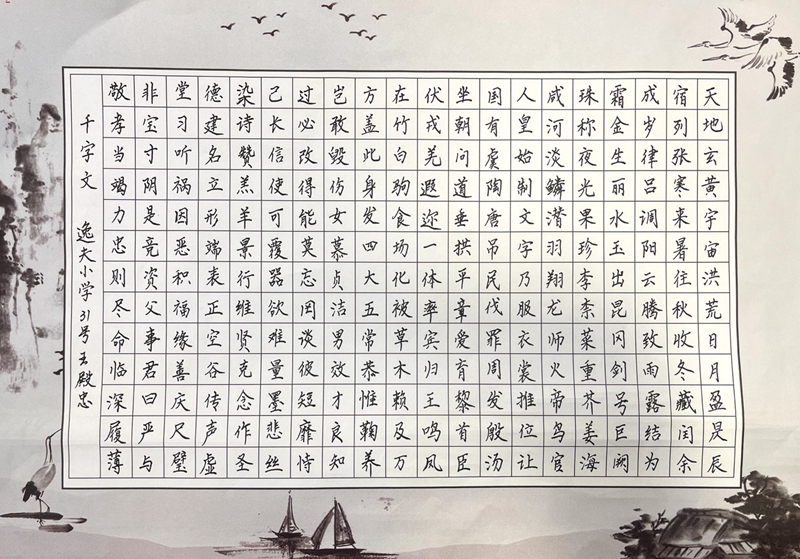 天地玄黄宇宙洪荒日月盈昃辰
宿列张寒来暑往秋收冬藏闰余
成岁律吕调阳云腾致雨露结为
霜金生丽水玉出昆冈剑号巨阙
珠称夜光果珍李柰菜重芥姜海
咸河淡鳞潜羽翔龙师火帝鸟官
人皇始制文字乃服衣裳推位让
国有虞陶唐吊民伐罪周发殷汤
坐朝问道垂拱平章爱育黎首臣
伏戎羌遐迩一体率宾归王鸣凤
在竹白驹食场化被草木赖及万
方盖此身发四大五常恭惟鞠养
岂敢毁伤女慕贞洁男效才良知
过必改得能莫忘罔谈彼短靡恃
己长信使可覆器欲难量墨悲丝
染诗赞羔羊景行维贤克念作圣
德建名立形端表正空谷传声虚
堂习听祸因恶积福缘善庆尺璧
非宝寸阴是竞资父事君曰严与
敬孝当竭力忠则尽命临深履薄
千字文 逸夫小学31号王殿忠